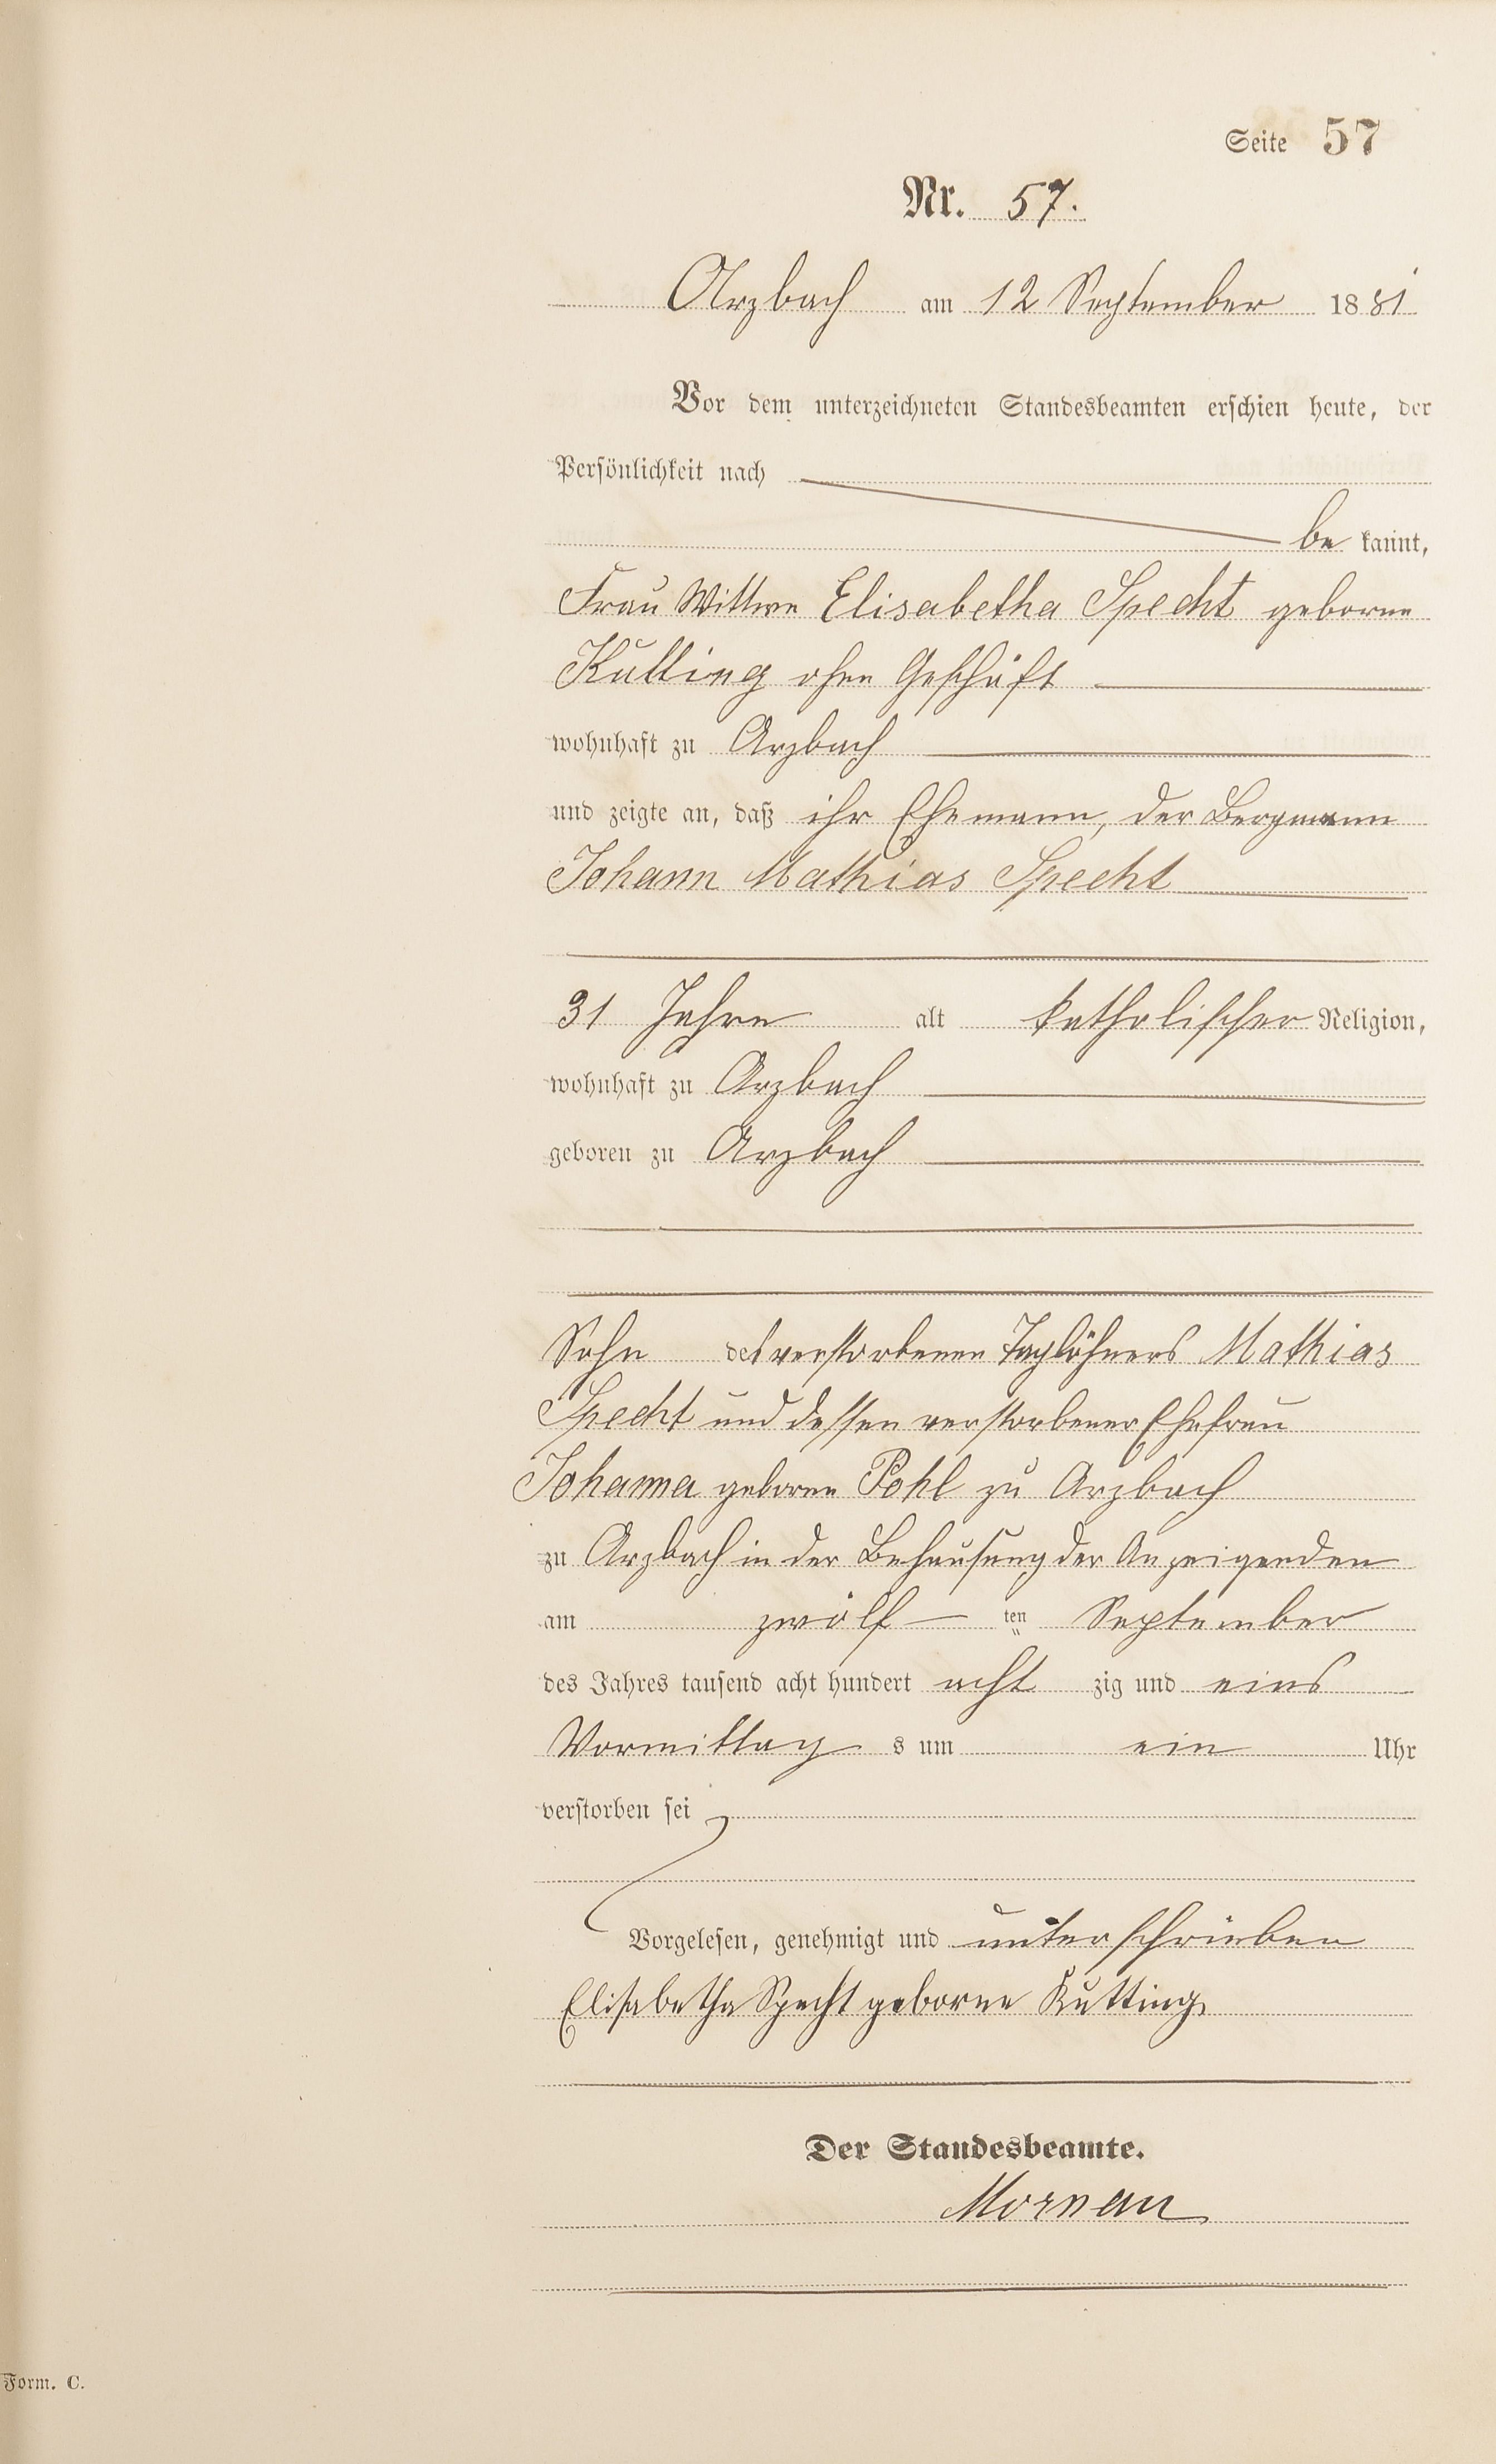 Seite 57
Nr. 57.
Arzbach am 12 September 1881
Vor dem unterzeichneten Standesbeamten erschien heute, der
Persönlichkeit nach
be kannt,
Frau Wittwe Elisabetha Specht geborne
Kutting ohne Geschäft
wohnhaft zu Arzbach
und zeigte an, daß ihr Ehemann, der Bergmann
Johann Mathias Specht
31 Jahre alt katholischer Religion,
wohnhaft zu Arzbach
geboren zu Arzbach
Sohn des verstorbenen Taglöhners Mathias
Specht und dessen verstorbener Ehefrau
Johanna geborne Pohl zu Arzbach
zu Arzbach in der Behausung der Anzeigenden
am zwölf ten September
des Jahres tausend acht hundert acht zig und eins
Vormittag s um ein Uhr
verstorben sei
Vorgelesen, genehmigt und unterschrieben
Elisabetha Specht geborne Kutting
Der Standesbeamte.
Mornau
Form. C.